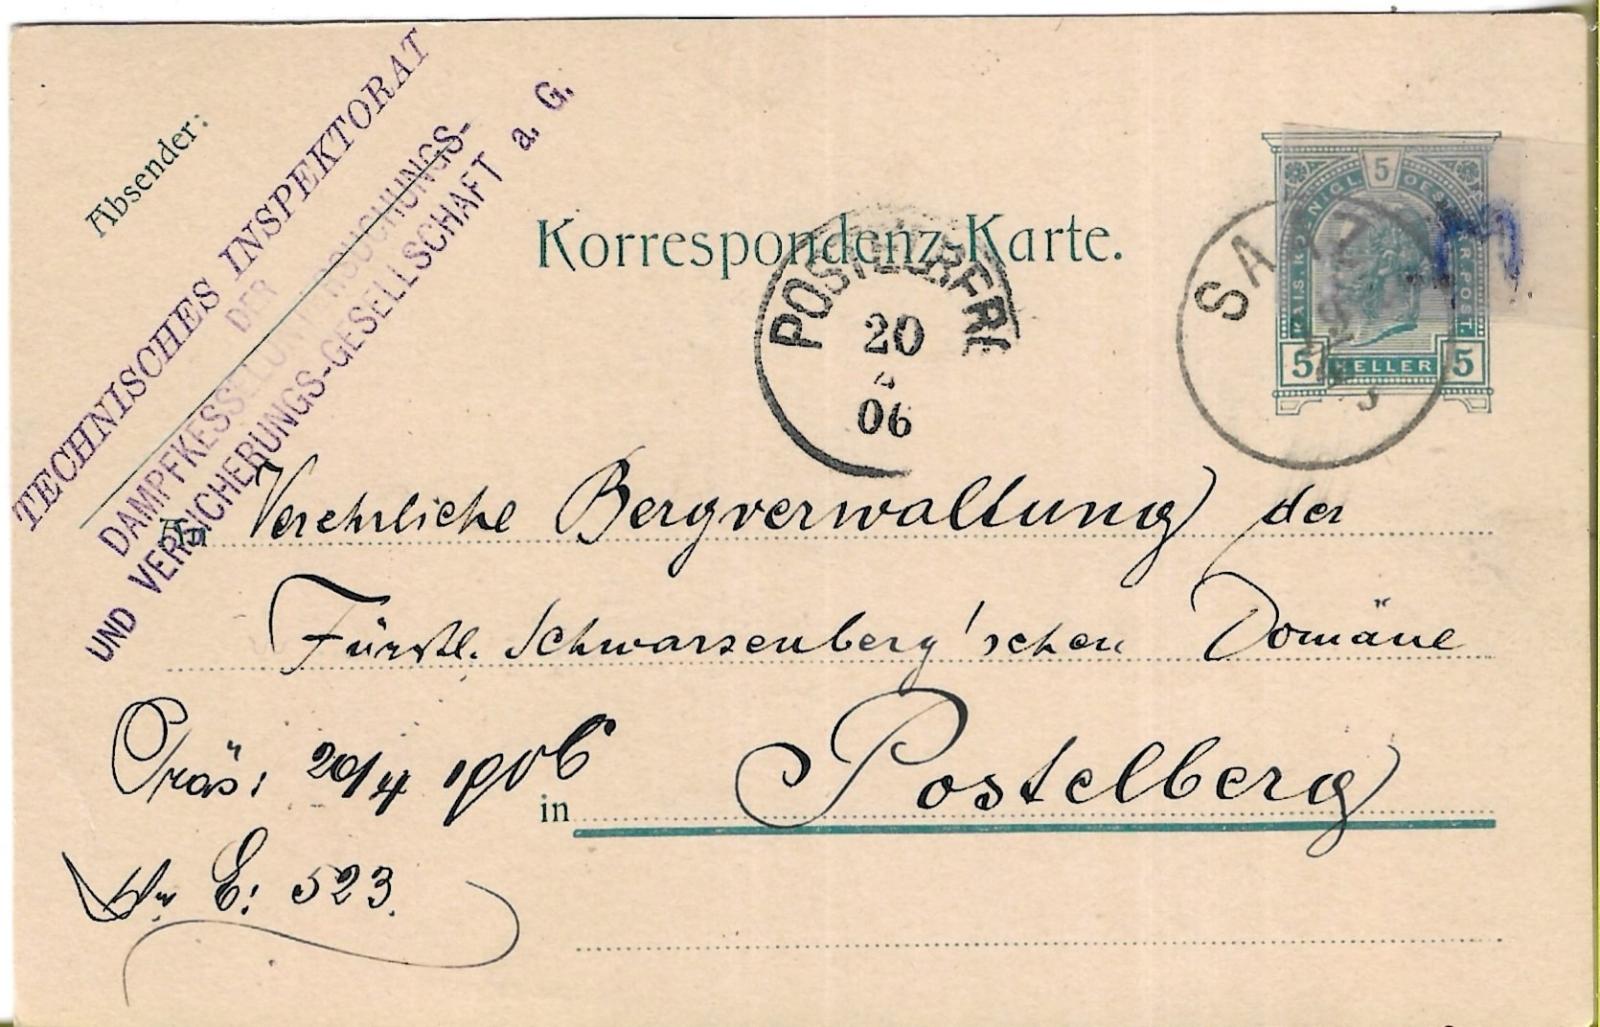 Absender:
TECHNISCHES INSPEKTORAT
DER
DAMPFKESSELUNTERSUCHUNGS-
UND VERSICHERUNGS-GESELLSCHAFT a. G.
Korrespondenz-Karte.
KAIS. KOENIGL. OESTERR. POST.
5
5 HELLER 5
SAAZ
20
06
An Verehrliche Bergverwaltung der
Fürstl. Schwarzenberg'schen Domäne
in Postelberg
Präs: 20/4 1906
E: 523.